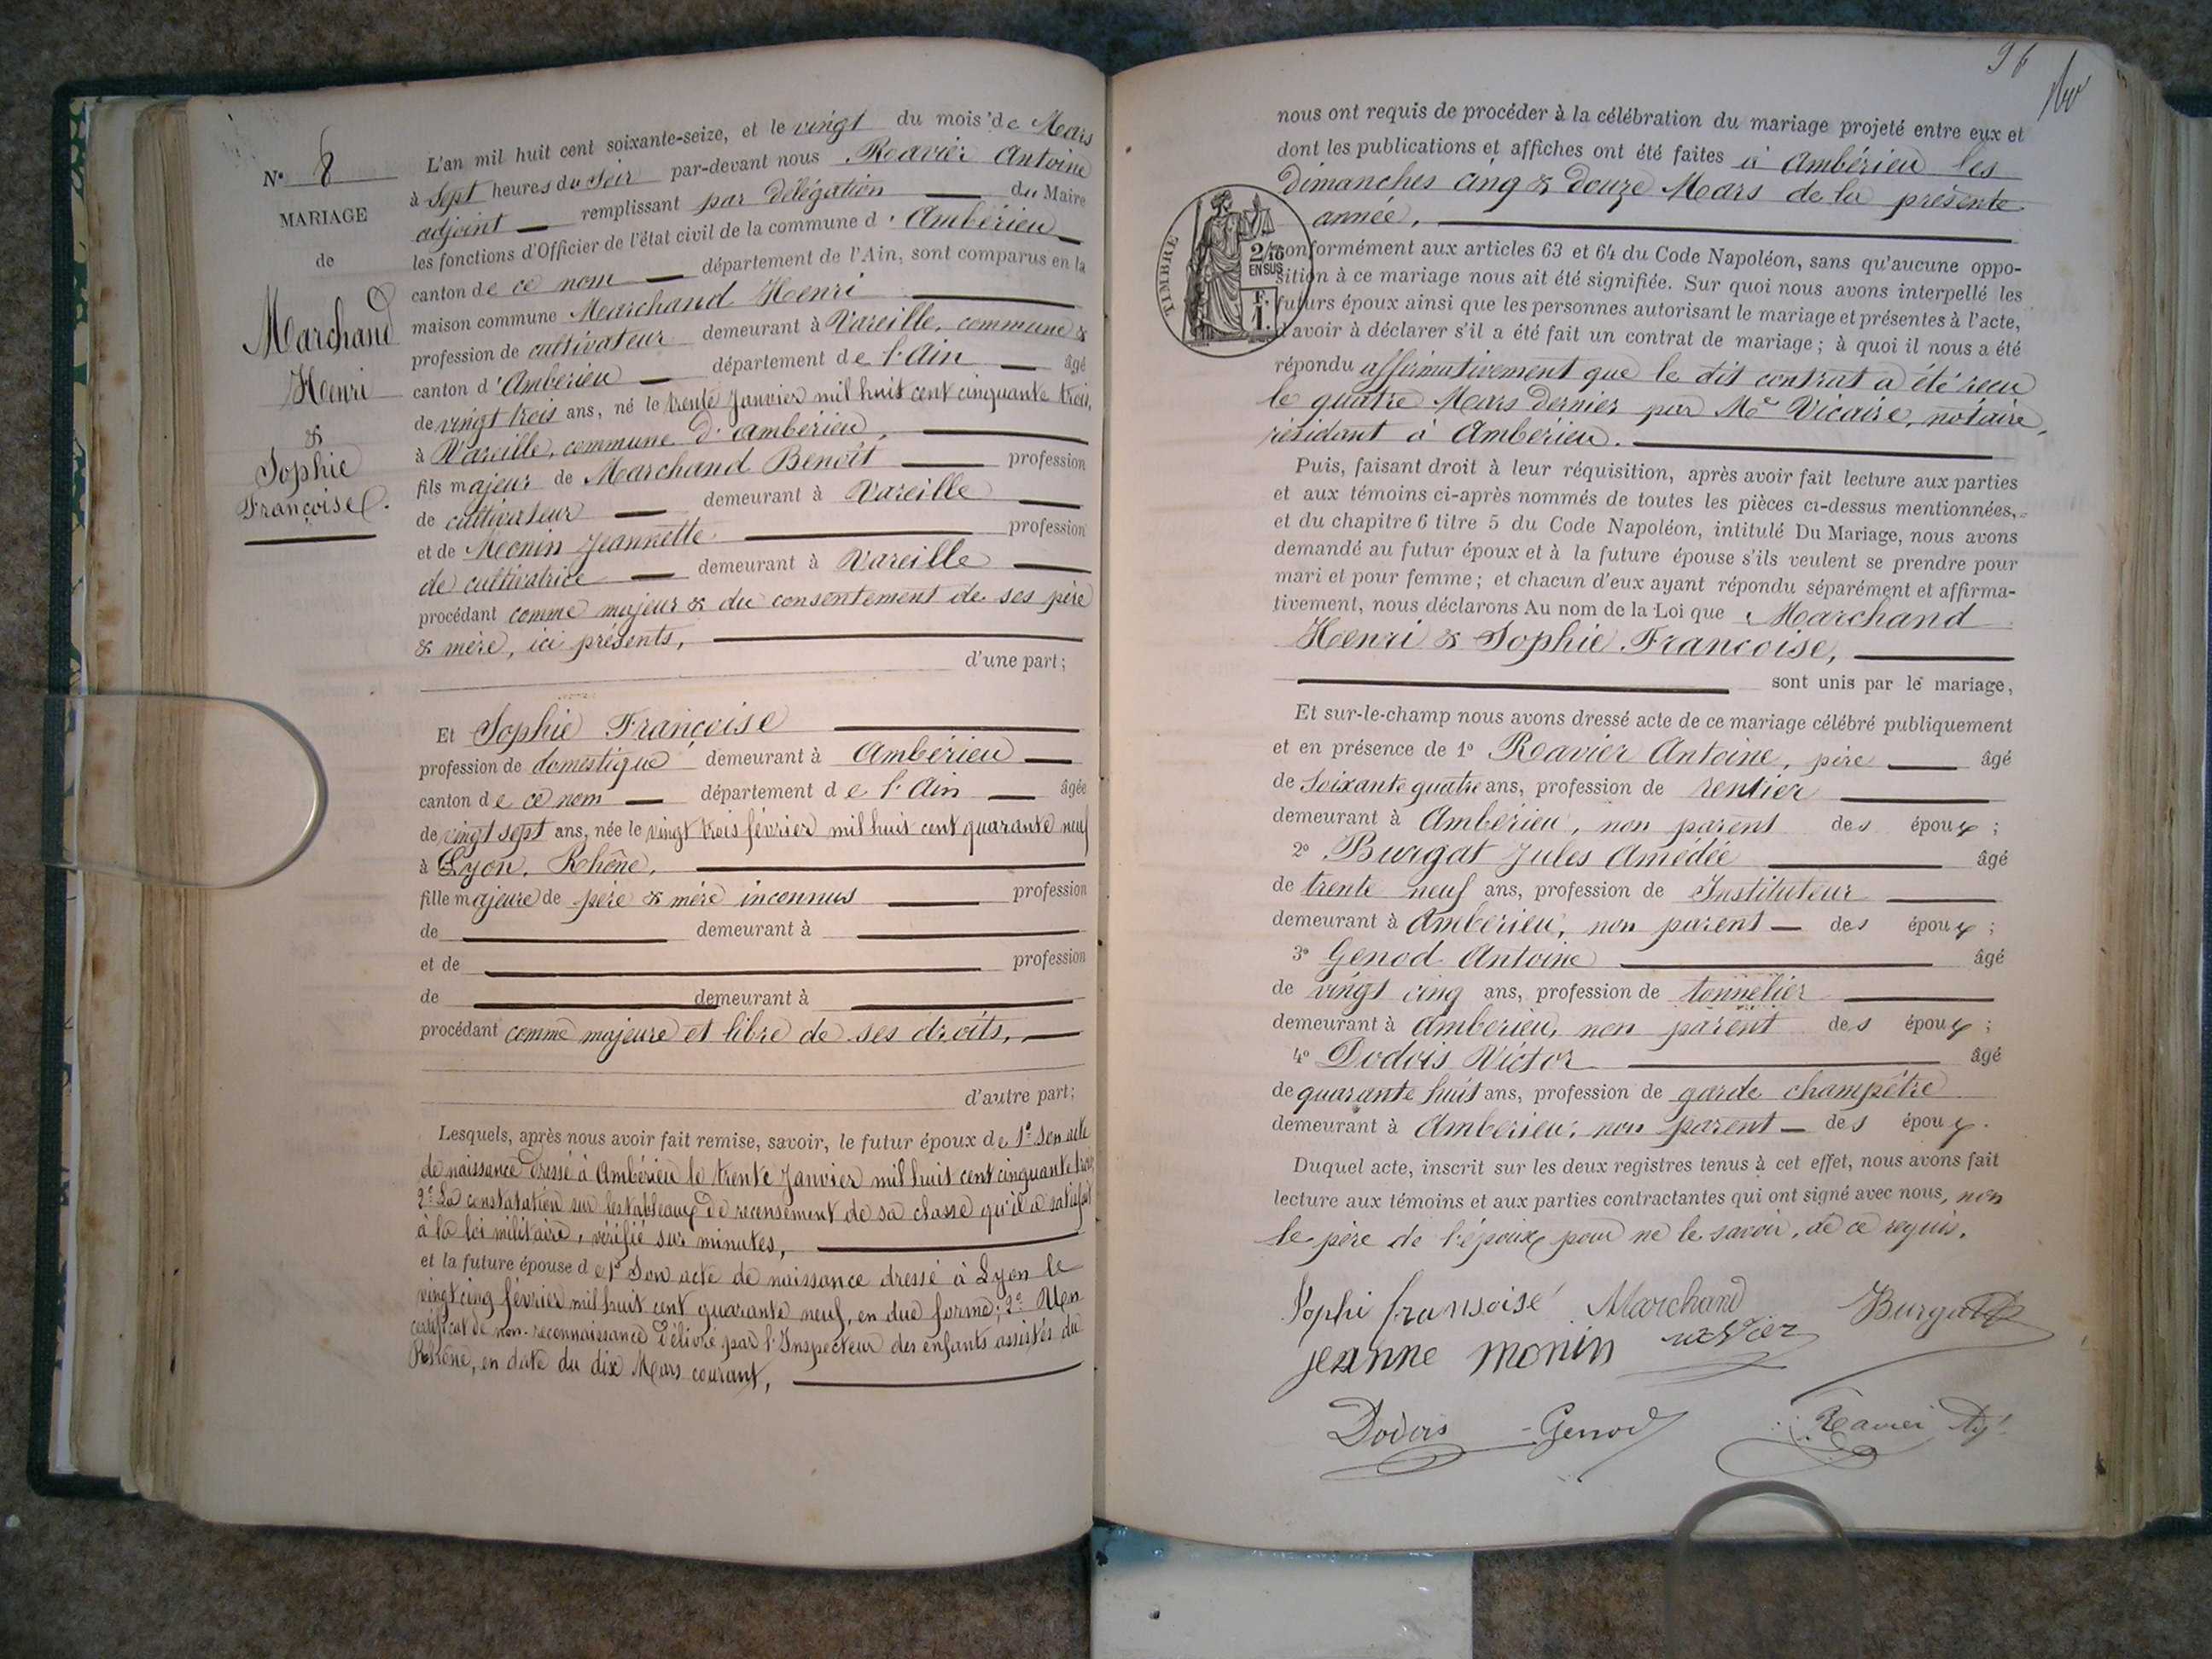 N° 8
MARIAGE
de
Marchand
Henri
&
Sophie
Françoise.
L'an mil huit cent soixante-seize, et le vingt du mois de Mars
à Sept heures du Soir par-devant nous Ravier Antoine
adjoint remplissant par délégation du Maire
les fonctions d'Officier de l'état civil de la commune d'Ambérieu
canton de ce nom département de l'Ain, sont comparus en la
maison commune Marchand Henri
profession de cultivateur demeurant à Vareille, commune &
canton d'Ambérieu département de l'Ain âgé
de vingt trois ans, né le trente Janvier mil huit cent cinquante trois,
à Vareille, commune d'ambérieu,
fils majeur de Marchand Benoît profession
de cultivateur demeurant à Vareille
et de Monin Jeannette profession
de cultivatrice demeurant à Vareille
procédant comme majeur & du consentement de ses père
& mère, ici présents,
d'une part;
Et Sophie Françoise
profession de domestique demeurant à Ambérieu
canton de ce nom département de l'Ain âgée
de vingt sept ans, née le vingt trois février mil huit cent quarante neuf
à Lyon, Rhône,
fille majeure de père & mère inconnus profession
de demeurant à
et de profession
de demeurant à
procédant comme majeure et libre de ses droits,
d'autre part;
Lesquels, après nous avoir fait remise, savoir, le futur époux de 1° Son acte
de naissance dressé à Ambérieu le trente Janvier mil huit cent cinquante trois,
2° La constatation sur les tableaux de recensement de sa classe qu'il a satisfait
à la loi militaire, vérifié sur minutes,
et la future épouse de 1° Son acte de naissance dressé à Lyon le
vingt cinq février mil huit cent quarante neuf, en due forme; 2° Un
certificat de non-reconnaissance délivré par l'Inspecteur des enfants assistés du
Rhône, en date du dix Mars courant,
96
nous ont requis de procéder à la célébration du mariage projeté entre eux et
dont les publications et affiches ont été faites à Ambérieu les
Dimanches cinq & douze Mars de la présente
année,
TIMBRE
2/10
EN SUS
F.
1.
conformément aux articles 63 et 64 du Code Napoléon, sans qu'aucune oppo-
sition à ce mariage nous ait été signifiée. Sur quoi nous avons interpellé les
futurs époux ainsi que les personnes autorisant le mariage et présentes à l'acte,
d'avoir à déclarer s'il a été fait un contrat de mariage; à quoi il nous a été
répondu affirmativement que le dit contrat a été recu
le quatre Mars dernier par Me Vicaire, notaire,
résidant à Ambérieu.
Puis, faisant droit à leur réquisition, après avoir fait lecture aux parties
et aux témoins ci-après nommés de toutes les pièces ci-dessus mentionnées,
et du chapitre 6 titre 5 du Code Napoléon, intitulé Du Mariage, nous avons
demandé au futur époux et à la future épouse s'ils veulent se prendre pour
mari et pour femme; et chacun d'eux ayant répondu séparément et affirma-
tivement, nous déclarons Au nom de la Loi que Marchand
Henri & Sophie Francoise,
sont unis par le mariage,
Et sur-le-champ nous avons dressé acte de ce mariage célébré publiquement
et en présence de 1° Ravier Antoine, père âgé
de Soixante quatre ans, profession de rentier
demeurant à Ambérieu, non parent des époux;
2° Burgat Jules Amédée âgé
de trente neuf ans, profession de Instituteur
demeurant à Ambérieu, non parent des époux;
3° Genod Antoine âgé
de vingt cinq ans, profession de tonnelier
demeurant à Ambérieu, non parent des époux;
4° Dodois Victor âgé
de quarante huit ans, profession de garde champêtre
demeurant à Ambérieu, non parent des époux.
Duquel acte, inscrit sur les deux registres tenus à cet effet, nous avons fait
lecture aux témoins et aux parties contractantes qui ont signé avec nous, non
le père de l'époux pour ne le savoir, de ce requis.
Sophi fransoise Marchand Burgat
jeanne monin ravier
Dodois Genod Ravier Adj.